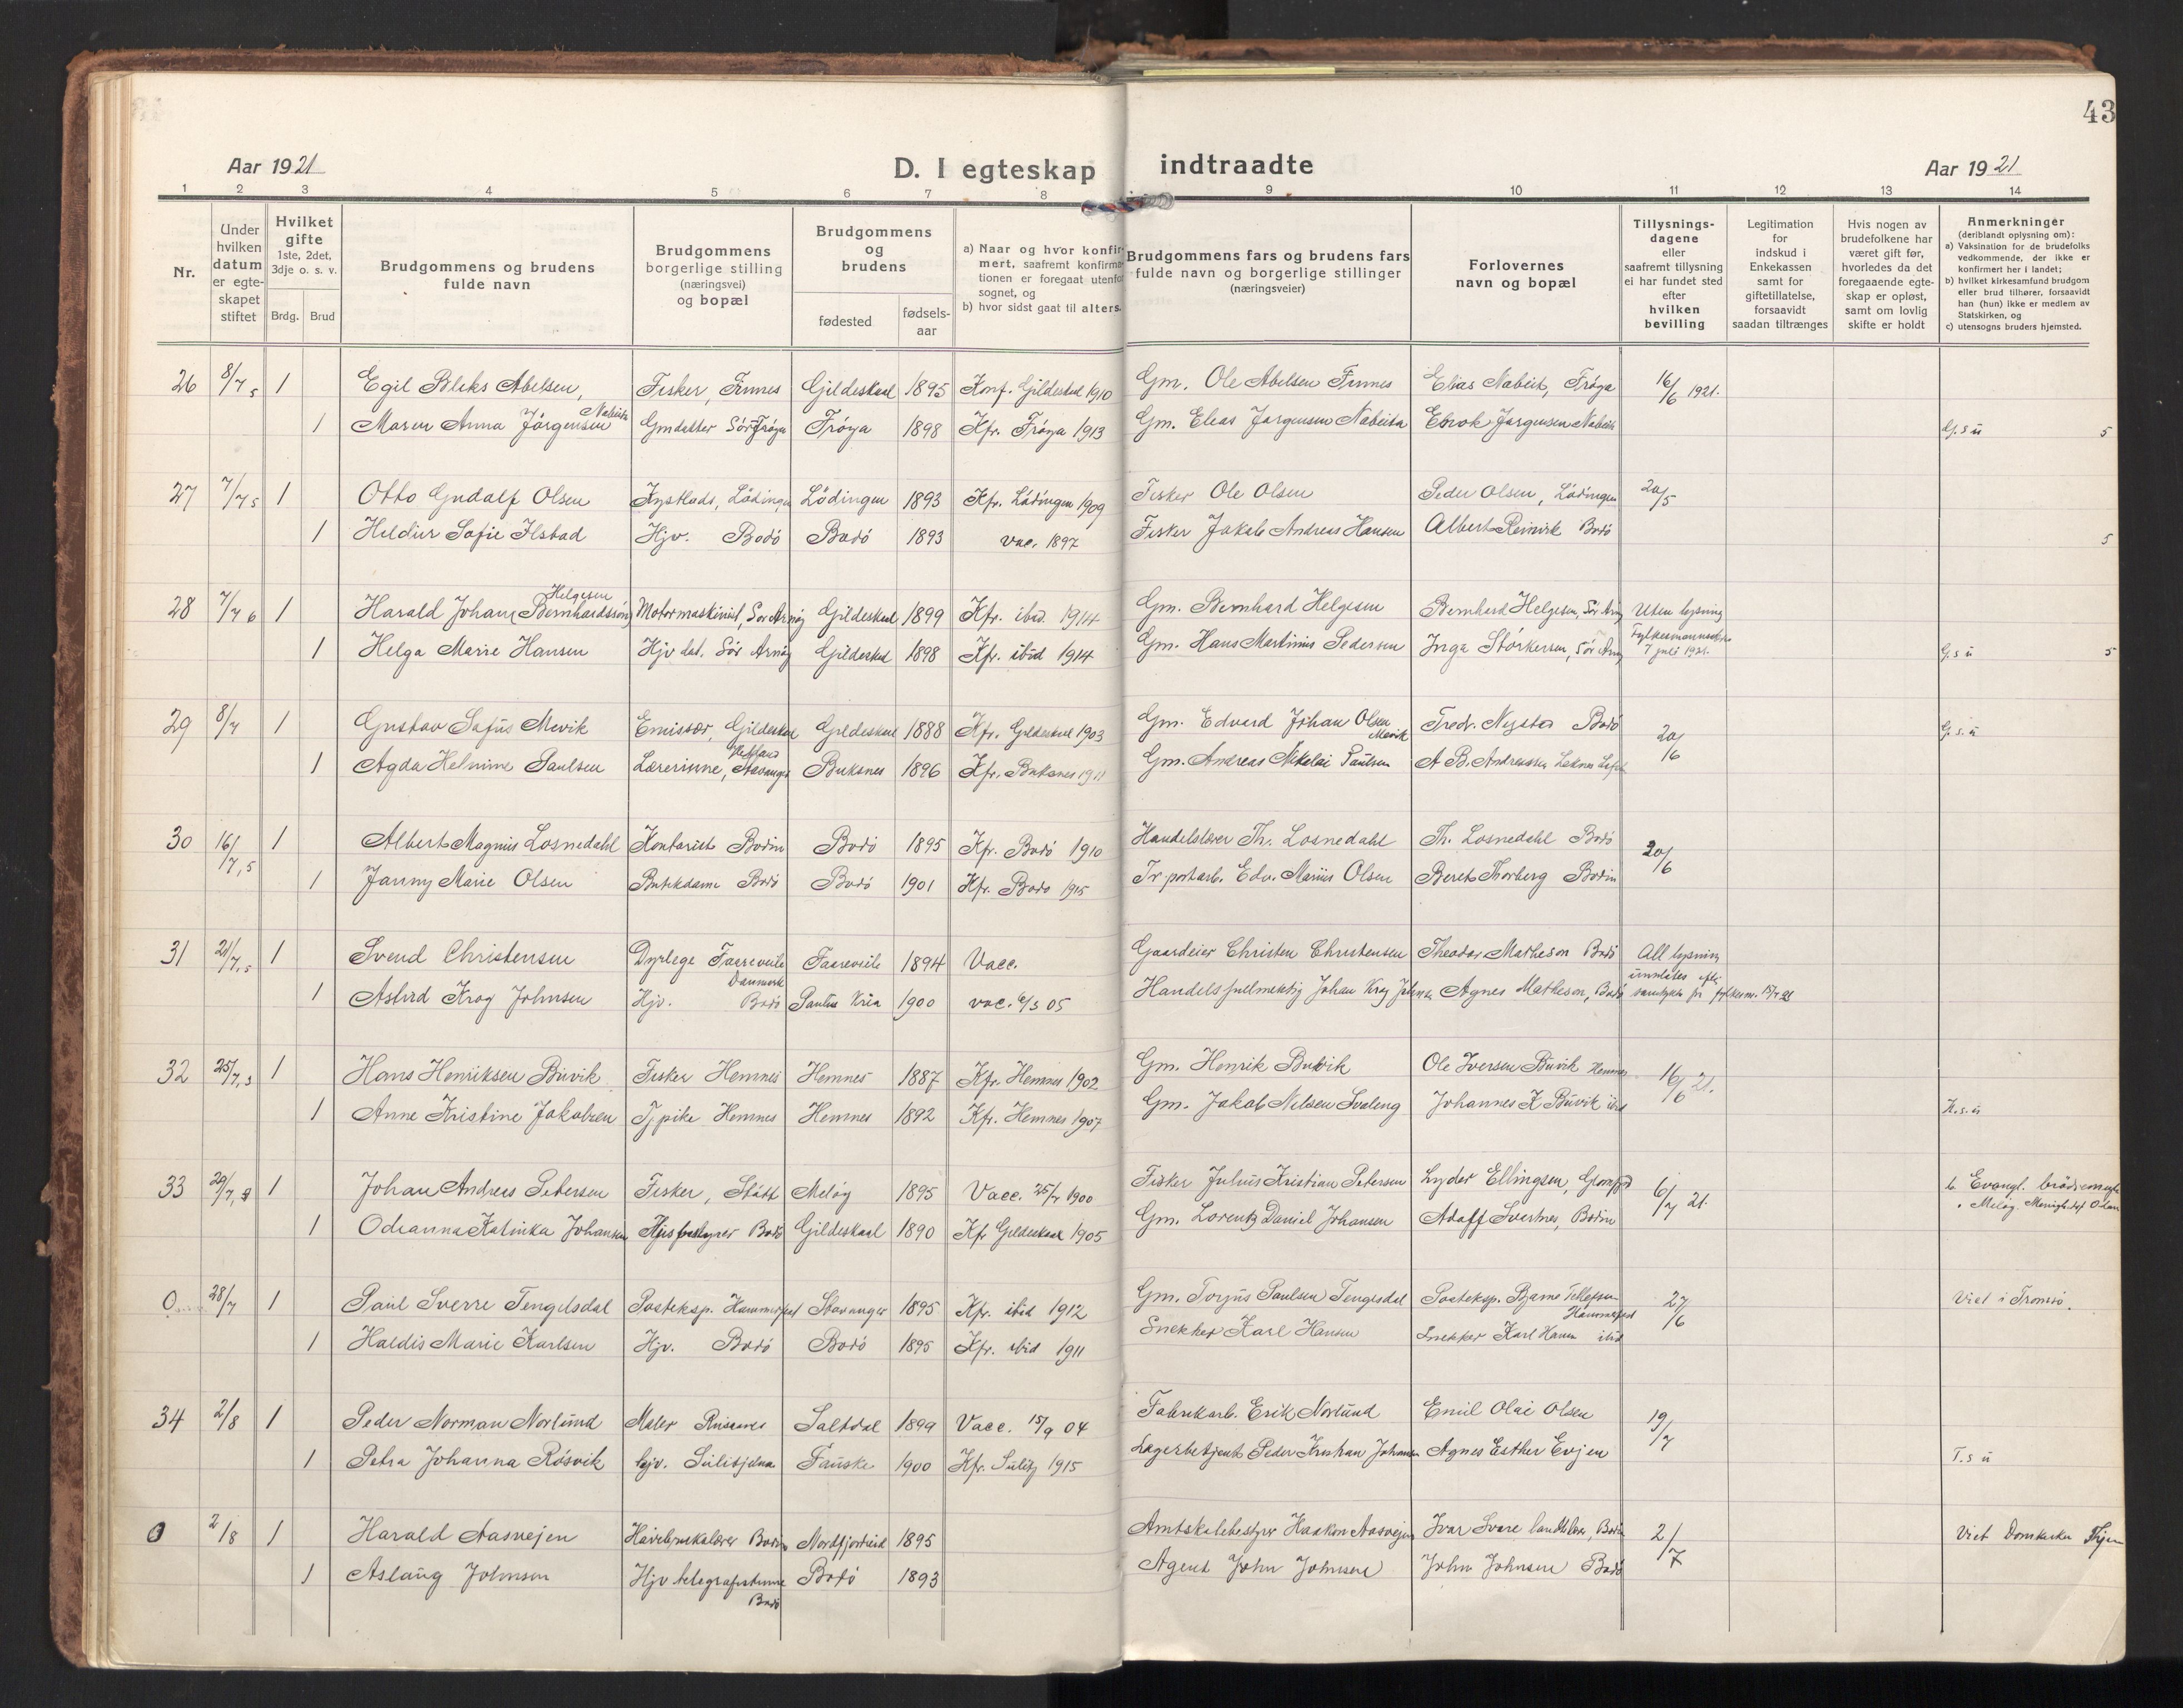 43
Aar 1921 D. I egteskap indtraadte Aar 1921
1 2 3 4 5 6 7 8 9 10 11 12 13 14
Nr.
Under hvilken datum er egteskapet stiftet
Hvilket gifte 1ste, 2det, 3dje o. s. v.
Brdg. Brud
Brudgommens og brudens fulde navn
Brudgommens borgerlige stilling (næringsvei) og bopæl
Brudgommens og brudens
fødested fødsels-aar
a) Naar og hvor konfirmert, saafremt konfirmationen er foregaat utenfor sognet, og
b) hvor sidst gaat til alters.
Brudgommens fars og brudens fars fulde navn og borgerlige stillinger (næringsveier)
Forlovernes navn og bopæl
Tillysnings-dagene eller saafremt tillysning ei har fundet sted efter hvilken bevilling
Legitimation for indskud i Enkekassen samt for giftetillatelse, forsaavidt saadan tiltrænges
Hvis nogen av brudefolkene har været gift før, hvorledes da det foregaaende egteskap er opløst, samt om lovlig skifte er holdt
Anmerkninger (deriblandt oplysning om):
a) Vaksination for de brudefolks vedkommende, der ikke er konfirmert her i landet;
b) hvilket kirkesamfund brudgom eller brud tilhører, forsaavidt han (hun) ikke er medlem av Statskirken, og
c) utensogns bruders hjemsted.
26 8/7 5 1 Egil Bleks Abelsen, Fisker, Finnes Gildeskaal 1895 Konf. Gildeskal 1910 Gm. Ole Abelsen Finnes Elias Nabeit, Frøya 16/6 1921.
1 Maren Anna Jörgensen Nabeita Gmdatter Sör Fröya Fröya 1898 Kfr. Fröya 1913 Gm. Elias Jörgensen Nabeita Enok Jørgensen Nabeit G. s u 5
27 7/7 5 1 Otto Gudolf Olsen Lödingen Lödingen 1893 Kfr. Lödingen 1909 Fisker Ole Olsen Peder Olsen, Lödingen 20/5
1 Heldur Sofie Ilstad Hjv. Bodö Bodö 1893 vac. 1897 Fisker Jakob Andreas Hansen Albert Reinvik Bodö 5
28 7/7 6 1 Harald Johan Bernhardssönn Helgesen Motormaskinist, Sör Arnöy Gildeskaal 1899 Kfr. ibid. 1914 Gm. Bernhard Helgesen Bernhard Helgesen, Sör Arnöy Uten lysning
1 Helga Marie Hansen Hjv dat. Sör Arnöy Gildeskal 1898 Kfr. ibid 1914 Gm. Hans Martinus Pedersen Inga Störkersen, Sör Arnöy 7 juli 1921. G. s u 5
29 8/7 1 Gustav Sofus Mevik Emissær, Gildeskal Gildeskaal 1888 Kfr. Gildeskal 1903 Gm. Edvard Johan Olsen Mevik Fredr. Nystad Bodö 20/6 G. s. u
1 Agda Helmine Paulsen Lærerinne, Buksnes 1896 Kfr. Buksnes 1911 Gm. Andreas Nikolai Paulsen A B. Andreassen Leknes Lofot
30 16/7, 5 1 Albert Magnus Losnedahl Kontorist Bodin Bodö 1895 Kfr. Bodö 1910 Handelslærer Th. Losnedahl Th. Losnedahl Bodö 20/6
1 Janny Marie Olsen Butikdame Bodö Bodö 1901 Kfr. Bodö 1915 Tr portarb. Edv. Marius Olsen Beret Thorberg Bodin
31 21/7, 5 1 Svend Christensen Dyrlege Faareveile Danmark Faareveile 1894 Vacc. Gaardeier Christen Christensen Theodor Matheson Bodö All lysning
1 Astrid Krog Johnsen Hjv. Bodö Paulus Kria 1900 vac. 6/5 05 Handelsfullmektig Johan Krog Johnsen Agnes Matheson, Bodö
32 25/7, 5 1 Hans Henriksen Buvik Fisker Hemnes Hemnes 1887 Kfr. Hemnes 1902 Gm. Henrik Buvik Ole Iversen Buvik Hemnes 16/6 21.
1 Anne Kristine Jakobsen Tj. pike Hemnes Hemnes 1892 Kfr. Hemnes 1907 Gm. Jakob Nilsen Svaleng Johannes K Buvik ibid H. s. u
33 29/7, 1 Johan Andreas Petersen Fisker, Stött Melöy 1895 Vacc. 25/7 1900 Fisker Julius Kristian Petersen Lyder Ellingsen, Glomfjd 6/7 21. b. Evangl.
1 Odeanna Katinka Johansen Bodö Gildeskaal 1890 Kf Gildeskaal 1905 Gm. Lorentz Daniel Johansen Adolf Svertnes, Bodin
0 28/7 1 Paul Sverre Tengesdal Posteksp. Hammerfest Stavanger 1895 Kfr. ibid 1912 Gm. Torjus Paulsen Tengesdal Posteksp. Bjarne Tellefsen Hammerfest 27/6 Viet i Tromsö.
1 Haldis Marie Karlsen Hjv. Bodö Bodö 1895 Kfr. ibid 1911 Snekker Karl Hansen Snekker Karl Hansen ibid
34 2/8 1 Peder Norman Norlund Maler Saltdal 1899 Vacc. 15/9 04 Fabrikarb. Erik Norlund Emil Olai Olsen 19/7
1 Petra Johanna Rösvik hjv. Sulitjelma Fauske 1900 Kfr. Sulitj 1915 Lagerbetjent Peder Kristian Johansen Agnes Esther Evjen T. s u
0 2/8 1 Harald Aasvejen Havebrukslærer Bodin Nordfjordeid 1895 Amtskolebestyrer Haakon Aasvejen Ivar Svare landb.lærer, Bodin 2/7 Viet Domkirken
1 Aslaug Johnsen Hjv telegrafistinne Bodö Bodö 1893 Agent John Johnsen John Johnsen Bodö